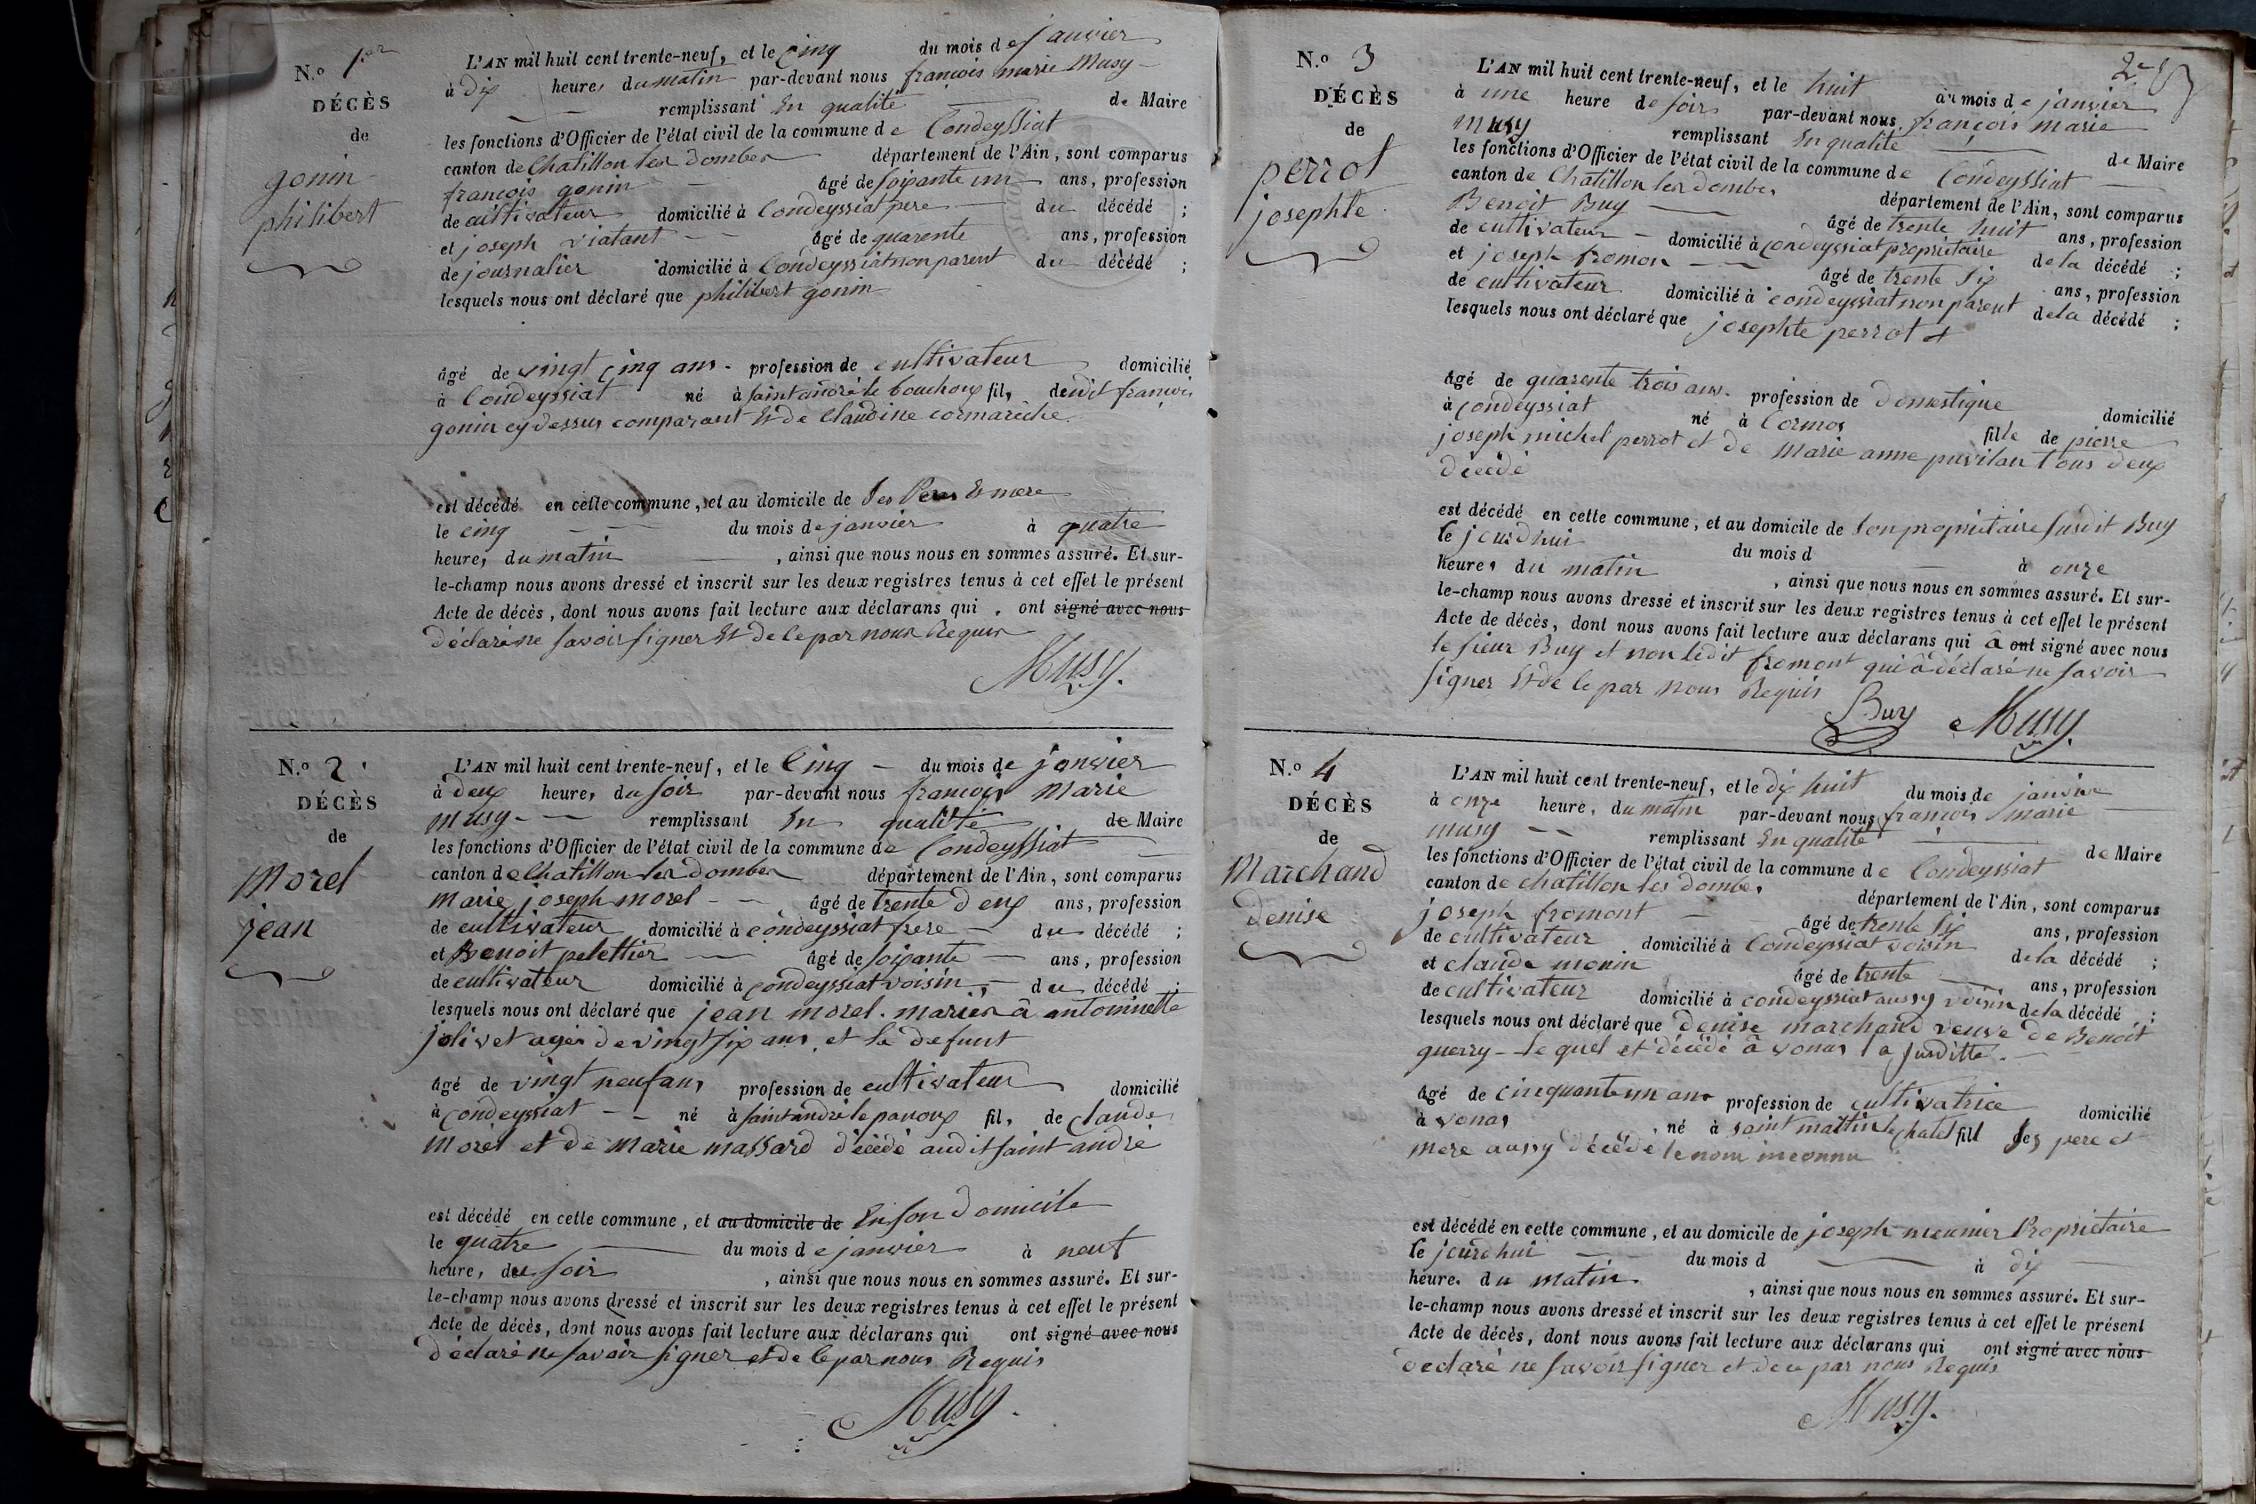 N.º 1.er
DÉCÈS
de
gonin
philibert
L'AN mil huit cent trente-neuf, et le cinq du mois de janvier
à dix heures du matin par-devant nous françois marie Musy
remplissant En qualité de Maire
les fonctions d'Officier de l'état civil de la commune de Condeyssiat
canton de Chatillon les dombes département de l'Ain, sont comparus
françois gonin âgé de soixante un ans, profession
de cultivateur domicilié à Condeyssiat pere du décédé ;
et joseph viatant âgé de quarente ans, profession
de journalier domicilié à Condeyssiat non parent du décédé ;
lesquels nous ont déclaré que philibert gonin
âgé de vingt cinq ans profession de cultivateur domicilié
à Condeyssiat né à saint andré le bouchoux fils dudit françois
gonin cy dessus comparant Et de Claudine cormareche
est décédé en cette commune, et au domicile de ses Peres Et mere
le cinq du mois de janvier à quatre
heures du matin , ainsi que nous nous en sommes assuré. Et sur-
le-champ nous avons dressé et inscrit sur les deux registres tenus à cet effet le présent
Acte de décès, dont nous avons fait lecture aux déclarans qui ont signé avec nous
déclaré ne savoir signer Et de ce par nous Requis
Musy.
N.º 2
DÉCÈS
de
Morel
jean
L'AN mil huit cent trente-neuf, et le Cinq du mois de janvier
à deux heures du soir par-devant nous françois Marie
musy remplissant En qualité de Maire
les fonctions d'Officier de l'état civil de la commune de Condeyssiat
canton de Chatillon les dombes département de l'Ain, sont comparus
Marie joseph morel âgé de trente deux ans, profession
de cultivateur domicilié à condeyssiat frere du décédé ;
et Benoit pelettier âgé de soixante ans, profession
de cultivateur domicilié à condeyssiat voisin du décédé ;
lesquels nous ont déclaré que jean morel. mariés à antoinette
jolivet agés de vingt six ans, et le defunt
âgé de vingt neuf ans profession de cultivateur domicilié
à condeyssiat né à saint andré le panoux fils de claude
Morel et de Marie massard décédé audit saint andré
est décédé en cette commune, et au domicile de En son domicile
le quatre du mois de janvier à neuf
heures du soir , ainsi que nous nous en sommes assuré. Et sur-
le-champ nous avons dressé et inscrit sur les deux registres tenus à cet effet le présent
Acte de décès, dont nous avons fait lecture aux déclarans qui ont signé avec nous
déclaré ne savoir signer et de ce par nous Requis
Musy.
2e
N.º 3
DÉCÈS
de
perrot
josephte
L'AN mil huit cent trente-neuf, et le huit du mois de janvier
à une heure de soir par-devant nous françois marie
musy remplissant En qualité de Maire
les fonctions d'Officier de l'état civil de la commune de Condeyssiat
canton de Chatillon les dombes département de l'Ain, sont comparus
Benoit Buy âgé de trente huit ans, profession
de cultivateur domicilié à condeyssiat propriétaire de la décédé ;
et joseph fromon âgé de trente six ans, profession
de cultivateur domicilié à condeyssiat non parent de la décédé ;
lesquels nous ont déclaré que josephte perrot
âgé de quarente trois ans. profession de domestique domicilié
à condeyssiat né à Cormos fille de pierre
joseph michel perrot et de Marie anne puvilan tous deux
décédé
est décédé en cette commune, et au domicile de son propriétaire susdit Buy
le jourdhui du mois d à onze
heures du matin , ainsi que nous nous en sommes assuré. Et sur-
le-champ nous avons dressé et inscrit sur les deux registres tenus à cet effet le présent
Acte de décès, dont nous avons fait lecture aux déclarans qui à ont signé avec nous
le sieur Buy et non ledit fromont qui à déclaré ne savoir
signer Et de ce par nous Requis
Buy Musy.
N.º 4
DÉCÈS
de
Marchand
denise
L'AN mil huit cent trente-neuf, et le dix huit du mois de janvier
à onze heures du matin par-devant nous françois marie
musy remplissant En qualité de Maire
les fonctions d'Officier de l'état civil de la commune de Condeyssiat
canton de chatillon les dombes département de l'Ain, sont comparus
joseph fromont âgé de trente six ans, profession
de cultivateur domicilié à Condeyssiat voisin de la décédé ;
et claude monin âgé de trente ans, profession
de cultivateur domicilié à condeyssiat aussy voisin de la décédé ;
lesquels nous ont déclaré que denise marchand veuve de Benoit
guerry le quel et décédé à vonas la susditte
âgé de cinquante un ans profession de cultivatrice domicilié
à vonas né à saint martin le chatel fill ses pere et
mere aussy décédé le nom inconnu
est décédé en cette commune, et au domicile de joseph meunier Propriétaire
le jourd hui du mois d à dix
heures du matin , ainsi que nous nous en sommes assuré. Et sur-
le-champ nous avons dressé et inscrit sur les deux registres tenus à cet effet le présent
Acte de décès, dont nous avons fait lecture aux déclarans qui ont signé avec nous
declaré ne savoir signer et de ce par nous Requis
Musy.